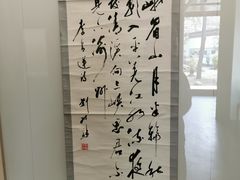 峨眉山月半輪秋
影入平羌江水流夜
發清溪向三峽思君
不見下渝州